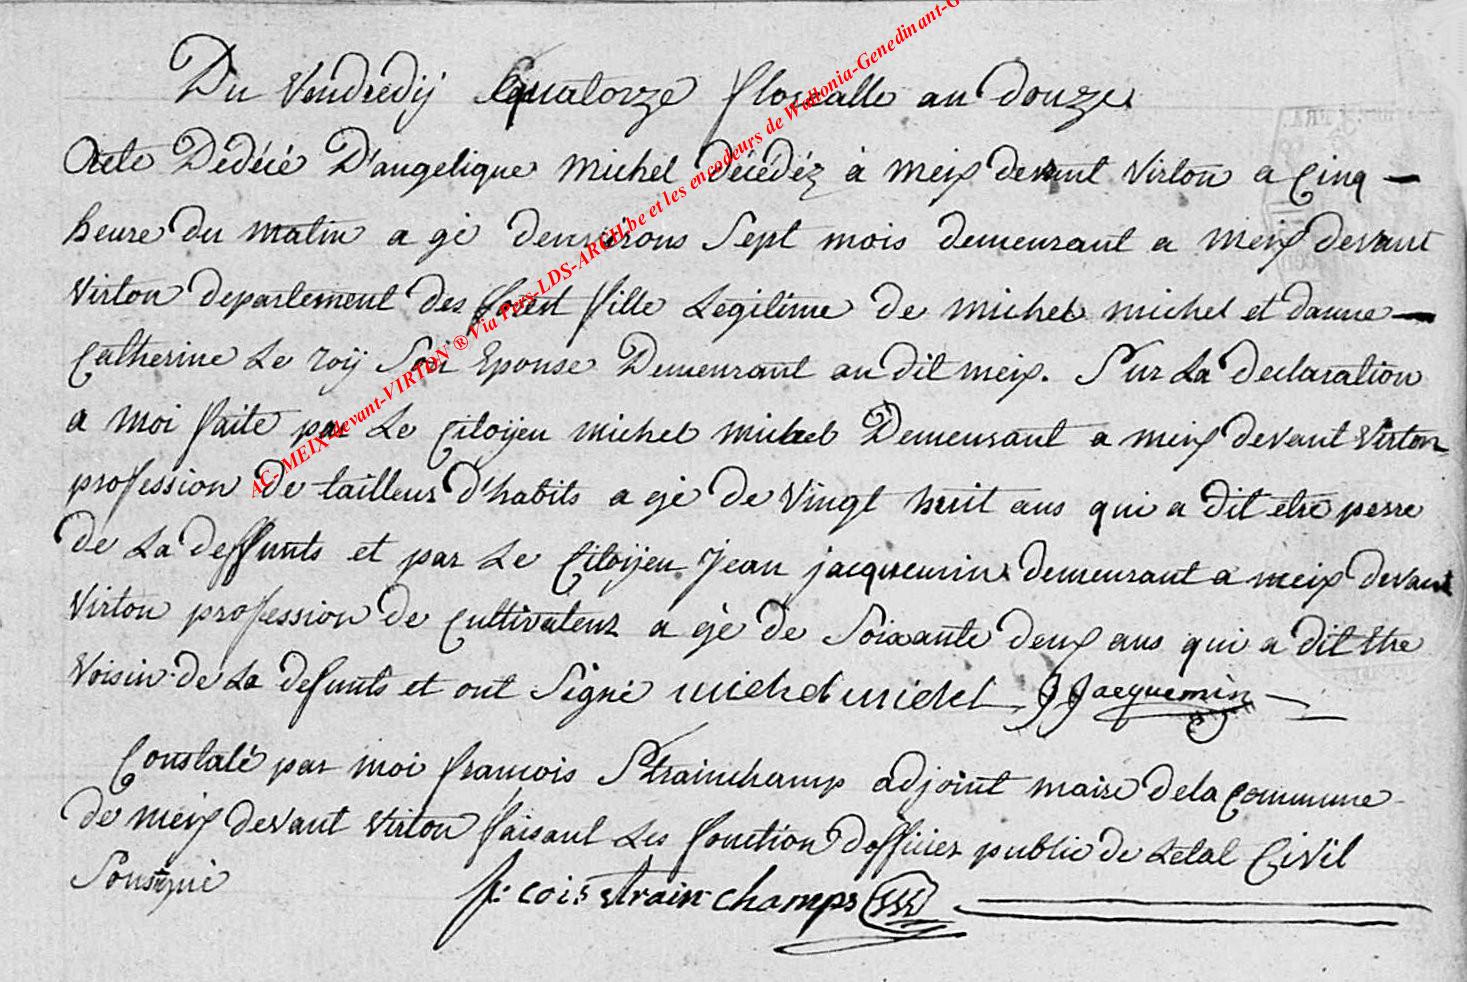 Du Vendredij quatorze florealle an douze
Acte Dedécé D'angelique Michel décédéz à Meix devant Virton a Cinq —
heure du matin a gé denvirons Sept mois demeurant a Meix devant
Virton departement des foret fille Legitime de michel michel et danne —
Catherine Le roij Son Epouse Demeurant au dit meix. Sur La declaration
a moi faite par Le Citoijen michel michel Demeurant a meix devant Virton
profession de tailleur d'habits a gé de Vingt huit ans qui a dit etre perre
de La deffunts et par Le Citoijen Jean jacquemin demeurant a meix devant
Virton profession de Cultivateur a gé de Soixante deux ans qui a dit Etre
Voisin de La defunts et ont Signé michel michel JJacquemin
Constaté par moi francois Strainchamp adjoint maire de la Commune
de meix devant Virton faisant Les fonction dofficier public de Letat Civil
Sousigné fr: cois strainchamps
AC- MEIX-devant-VIRTON ® Via Pers-LDS-ARCH.be et les encodeurs de Wallonia-Genedinant-G